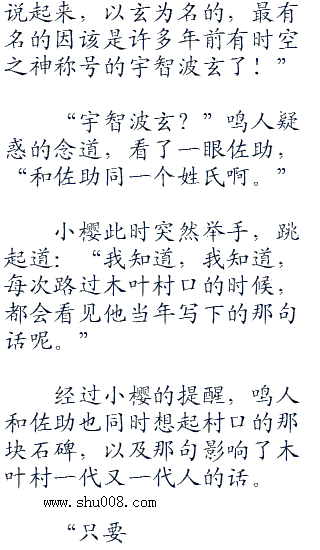 说起来，以玄为名的，最有
名的因该是许多年前有时空
之神称号的宇智波玄了！”
“宇智波玄？”鸣人疑
惑的念道，看了一眼佐助，
“和佐助同一个姓氏啊。”
小樱此时突然举手，跳
起道：“我知道，我知道，
每次路过木叶村口的时候，
都会看见他当年写下的那句
话呢。”
经过小樱的提醒，鸣人
和佐助也同时想起村口的那
块石碑，以及那句影响了木
叶村一代又一代人的话。
www.shu008.com
“只要